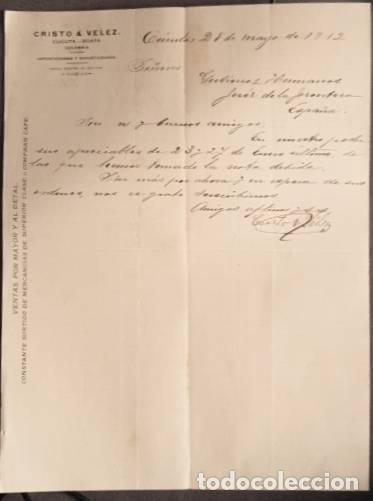 CRISTO & VELEZ.
CUCUTA - BOATA
COLOMBIA
IMPORTADORES Y EXPORTADORES
Cúcuta 28 de mayo de 1912
Señores
Hermanos
Jerez de la Frontera
España.
y buenos amigos.
En nuestro poder
sus apreciables de 23 y 27 de Enero último, de
las que hemos tomado la nota debida.
Sin más por ahora y en espera de sus
ordenes, nos es grato suscribirnos
Amigos afftmos y s s
Cristo & Velez
VENTAS POR MAYOR Y AL DETAL.
CONSTANTE SURTIDO DE MERCANCIAS DE SUPERIOR CLASE - COMPRAN CAFE.
todocoleccion.net